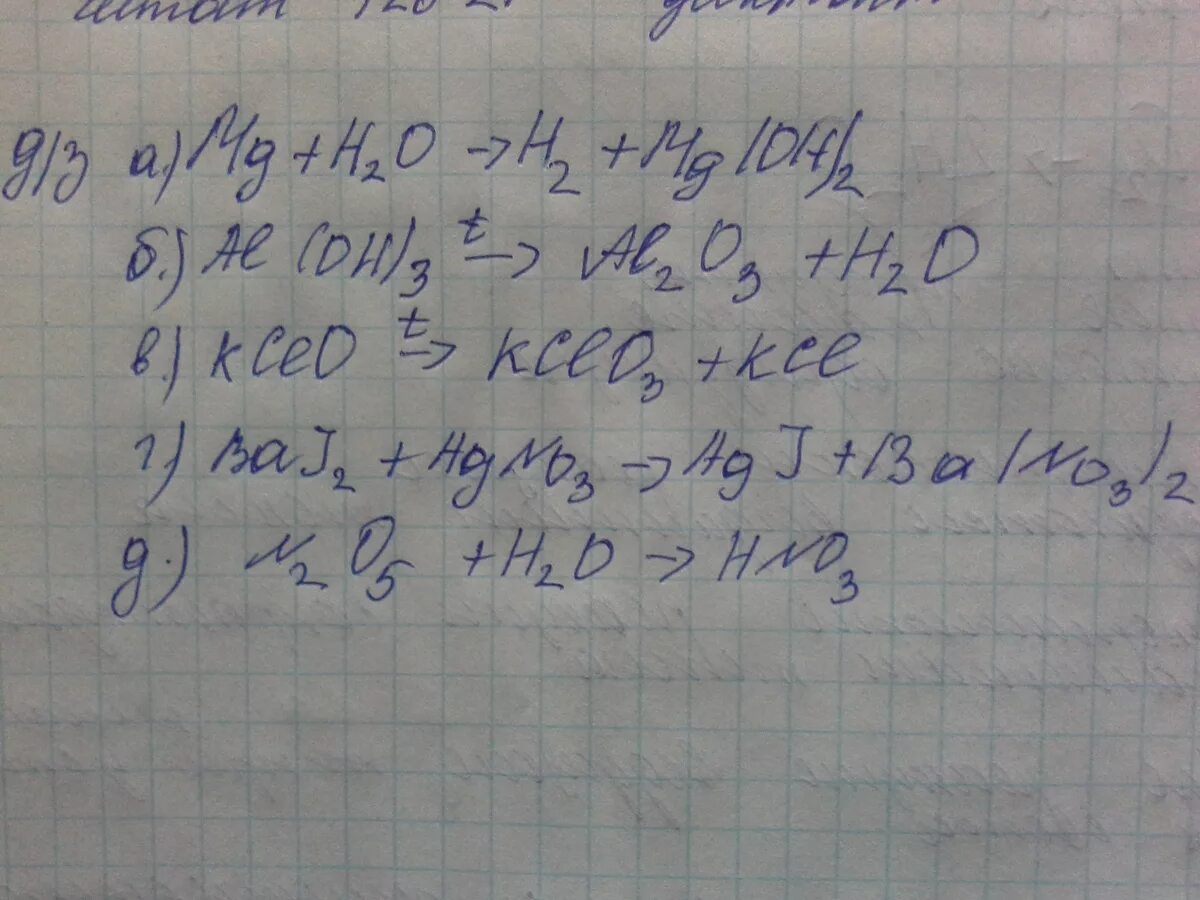 д/з а.) Mg + H₂O → H₂ + Mg(OH)₂
б.) Al(OH)₃ t→ Al₂O₃ + H₂O
в.) KClO t→ KClO₃ + KCl
г.) BaJ₂ + AgNO₃ → AgJ + Ba(NO₃)₂
д.) N₂O₅ + H₂O → HNO₃